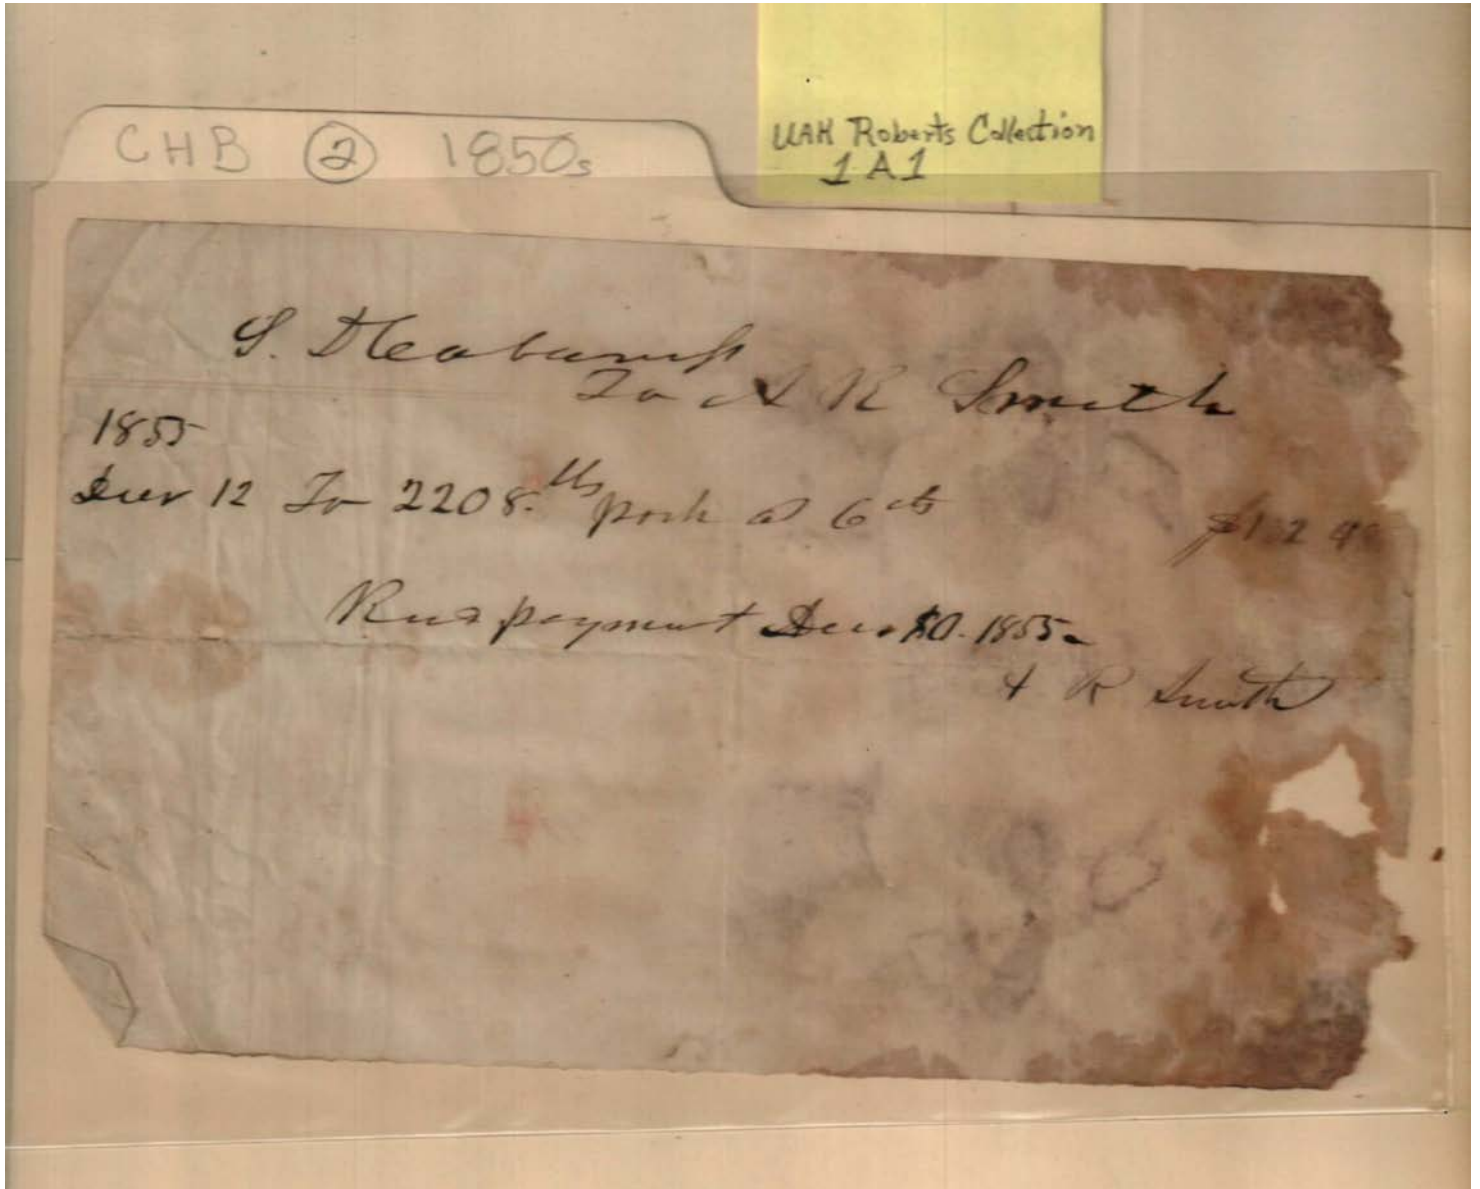 CHB ② 1850s
UAH Roberts Collection
1 A 1
S. D Cabaniss
To A R Smith
1855
Decr 12 To 2208. lbs pork at 6 cts
Recd payment Decr 1855.
A R Smith